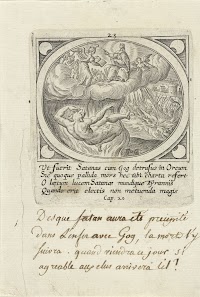 23
Ut fuerit Satanas cum Gog detrusus in Orcum
Sic quoque pallida mors hec ubi
O lucem Satanae mundique Tyrannis
Quando erit electis non metuenda magis
Cap. 20
Desque satan aura este precipité
dans l'enfer avec Gog, la mort l'y
suivra. quand viendra ce jour si
agreable aux elus arrivera t'il!